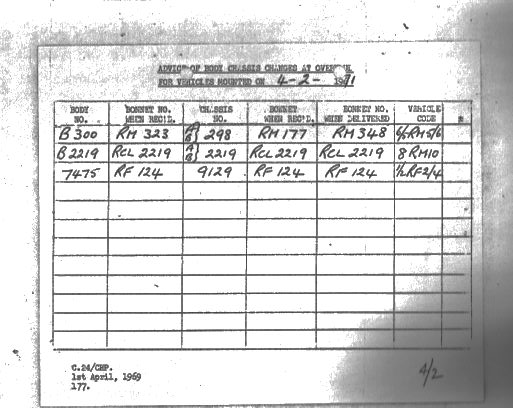 ADVICE OF BODY CHASSIS CHANGES AT OVERHAUL
FOR VEHICLES MOUNTED ON 4-2-1971
BODY NO. BONNET NO. WHEN REC'D. CHASSIS NO. BONNET WHEN REC'D. BONNET NO. WHEN DELIVERED VEHICLE CODE *
B300 RM 323 A/B} 298 RM177 RM348 RM5/6
B2219 RCL 2219 A/B} 2219 RCL2219 RCL 2219 8RM10
7475 RF 124 9129 RF 124 RF 124 1/2RF2/4
C.24/CHP.
1st April, 1969
177.
4/2